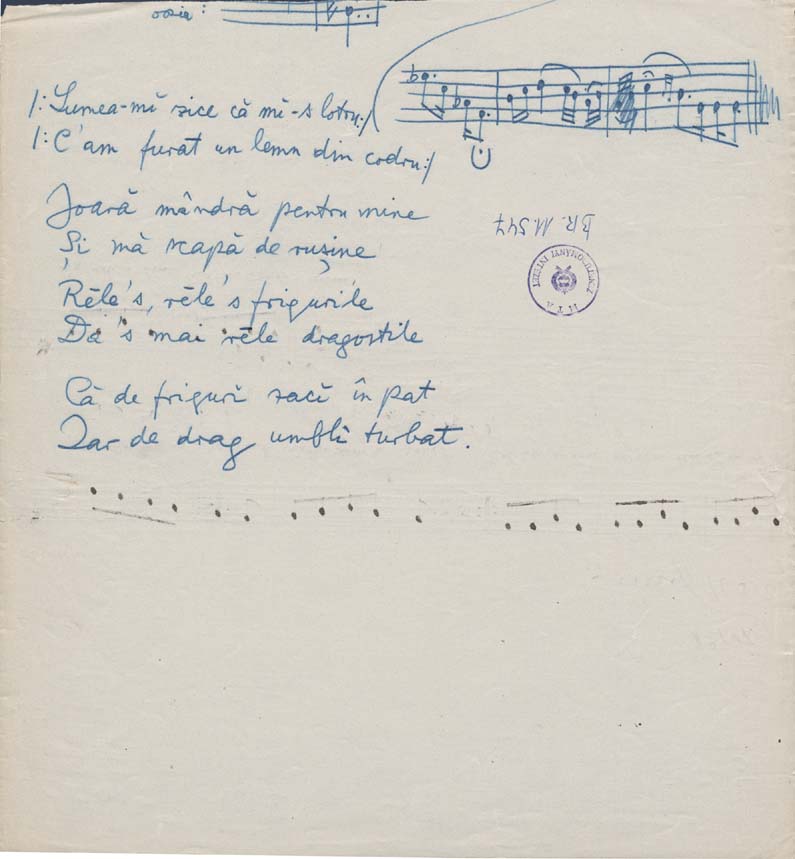 ossia:
/: Lumea-mĭ zice că mi-s lotru :/
/: C'am furat un lemn din codru :/
Joară mândră pentru mine
Și mă scapă de rușine
Rěle's, rěle's frigurile
Da's mai rěle dragostile
Că de frigurĭ zacĭ în pat
Iar de drag umblĭ turbat.
BR. 11.547
M.T.A.
ZENETUDOMÁNYI INTÉZET